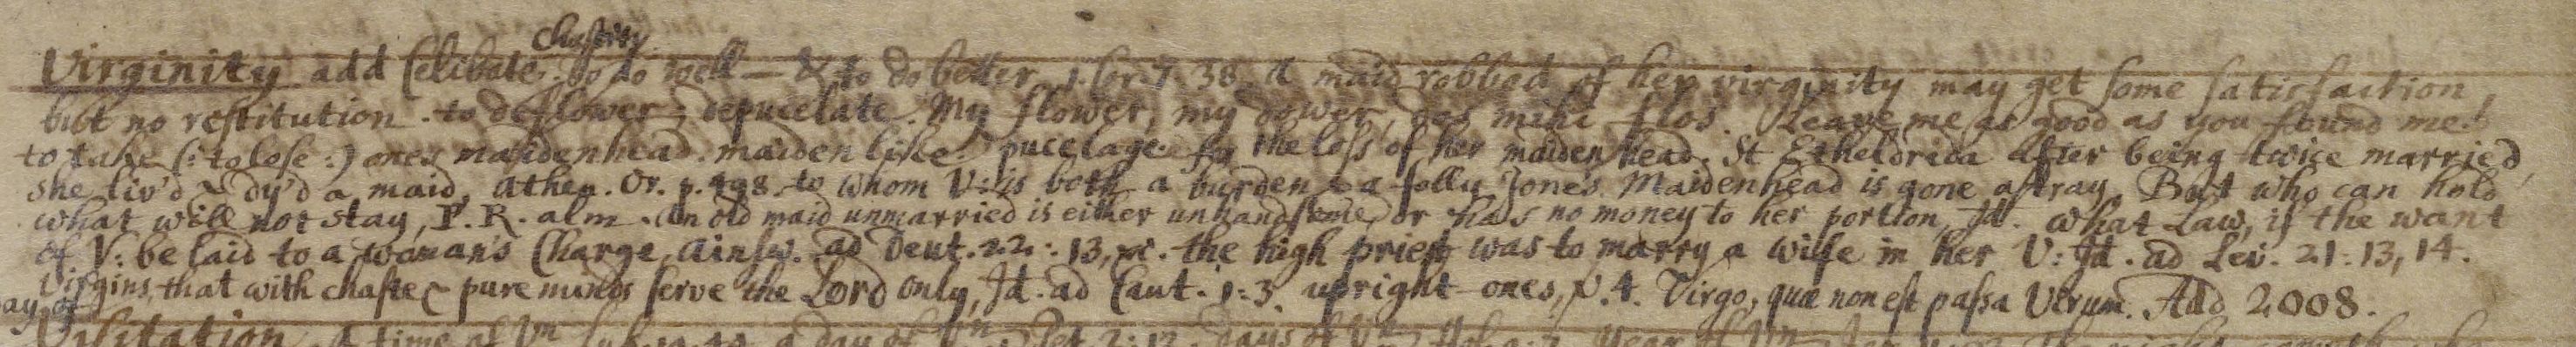 Chastity
Virginity add Celibate. to do well — & to do better 1. Cor. 7. 38. A maid robbed of her virginity may get some satisfaction,
but no restitution. to deflower, depucelate. My flower, my dower, dos mihi flos. Leave me as good as you found me.
to take (: to lose :) ones maidenhead. maiden like. pucelage. for the loss of her maidenhead. St Etheldreda after being twice married,
she liv'd & dy'd a maid, Athen. Or. p. 498. to whom V: is both a burden & a folly Jone's Maidenhead is gone astray, But who can hold
what will not stay, P. R. alm. An old maid unmarried is either unhandsome, or has no money to her portion, Id. what Law, if the want
of V: be laid to a woman's Charge, Ainsw. ad Deut. 22: 13, &c. the high priest was to marry a wife in her V: Id. ad Lev. 21: 13, 14.
Virgins, that with chaste & pure minds serve the Lord only, Id. ad Cant. 1: 3. upright ones, V. 4. Virgo, quæ non est passa Virum. Add 2008.
ay of
Visitation. A time of Vn Luk. 19. 44. a day of Vn. 1 Pet 2: 12. days of Vn Hos. 9: 7. year of Vn